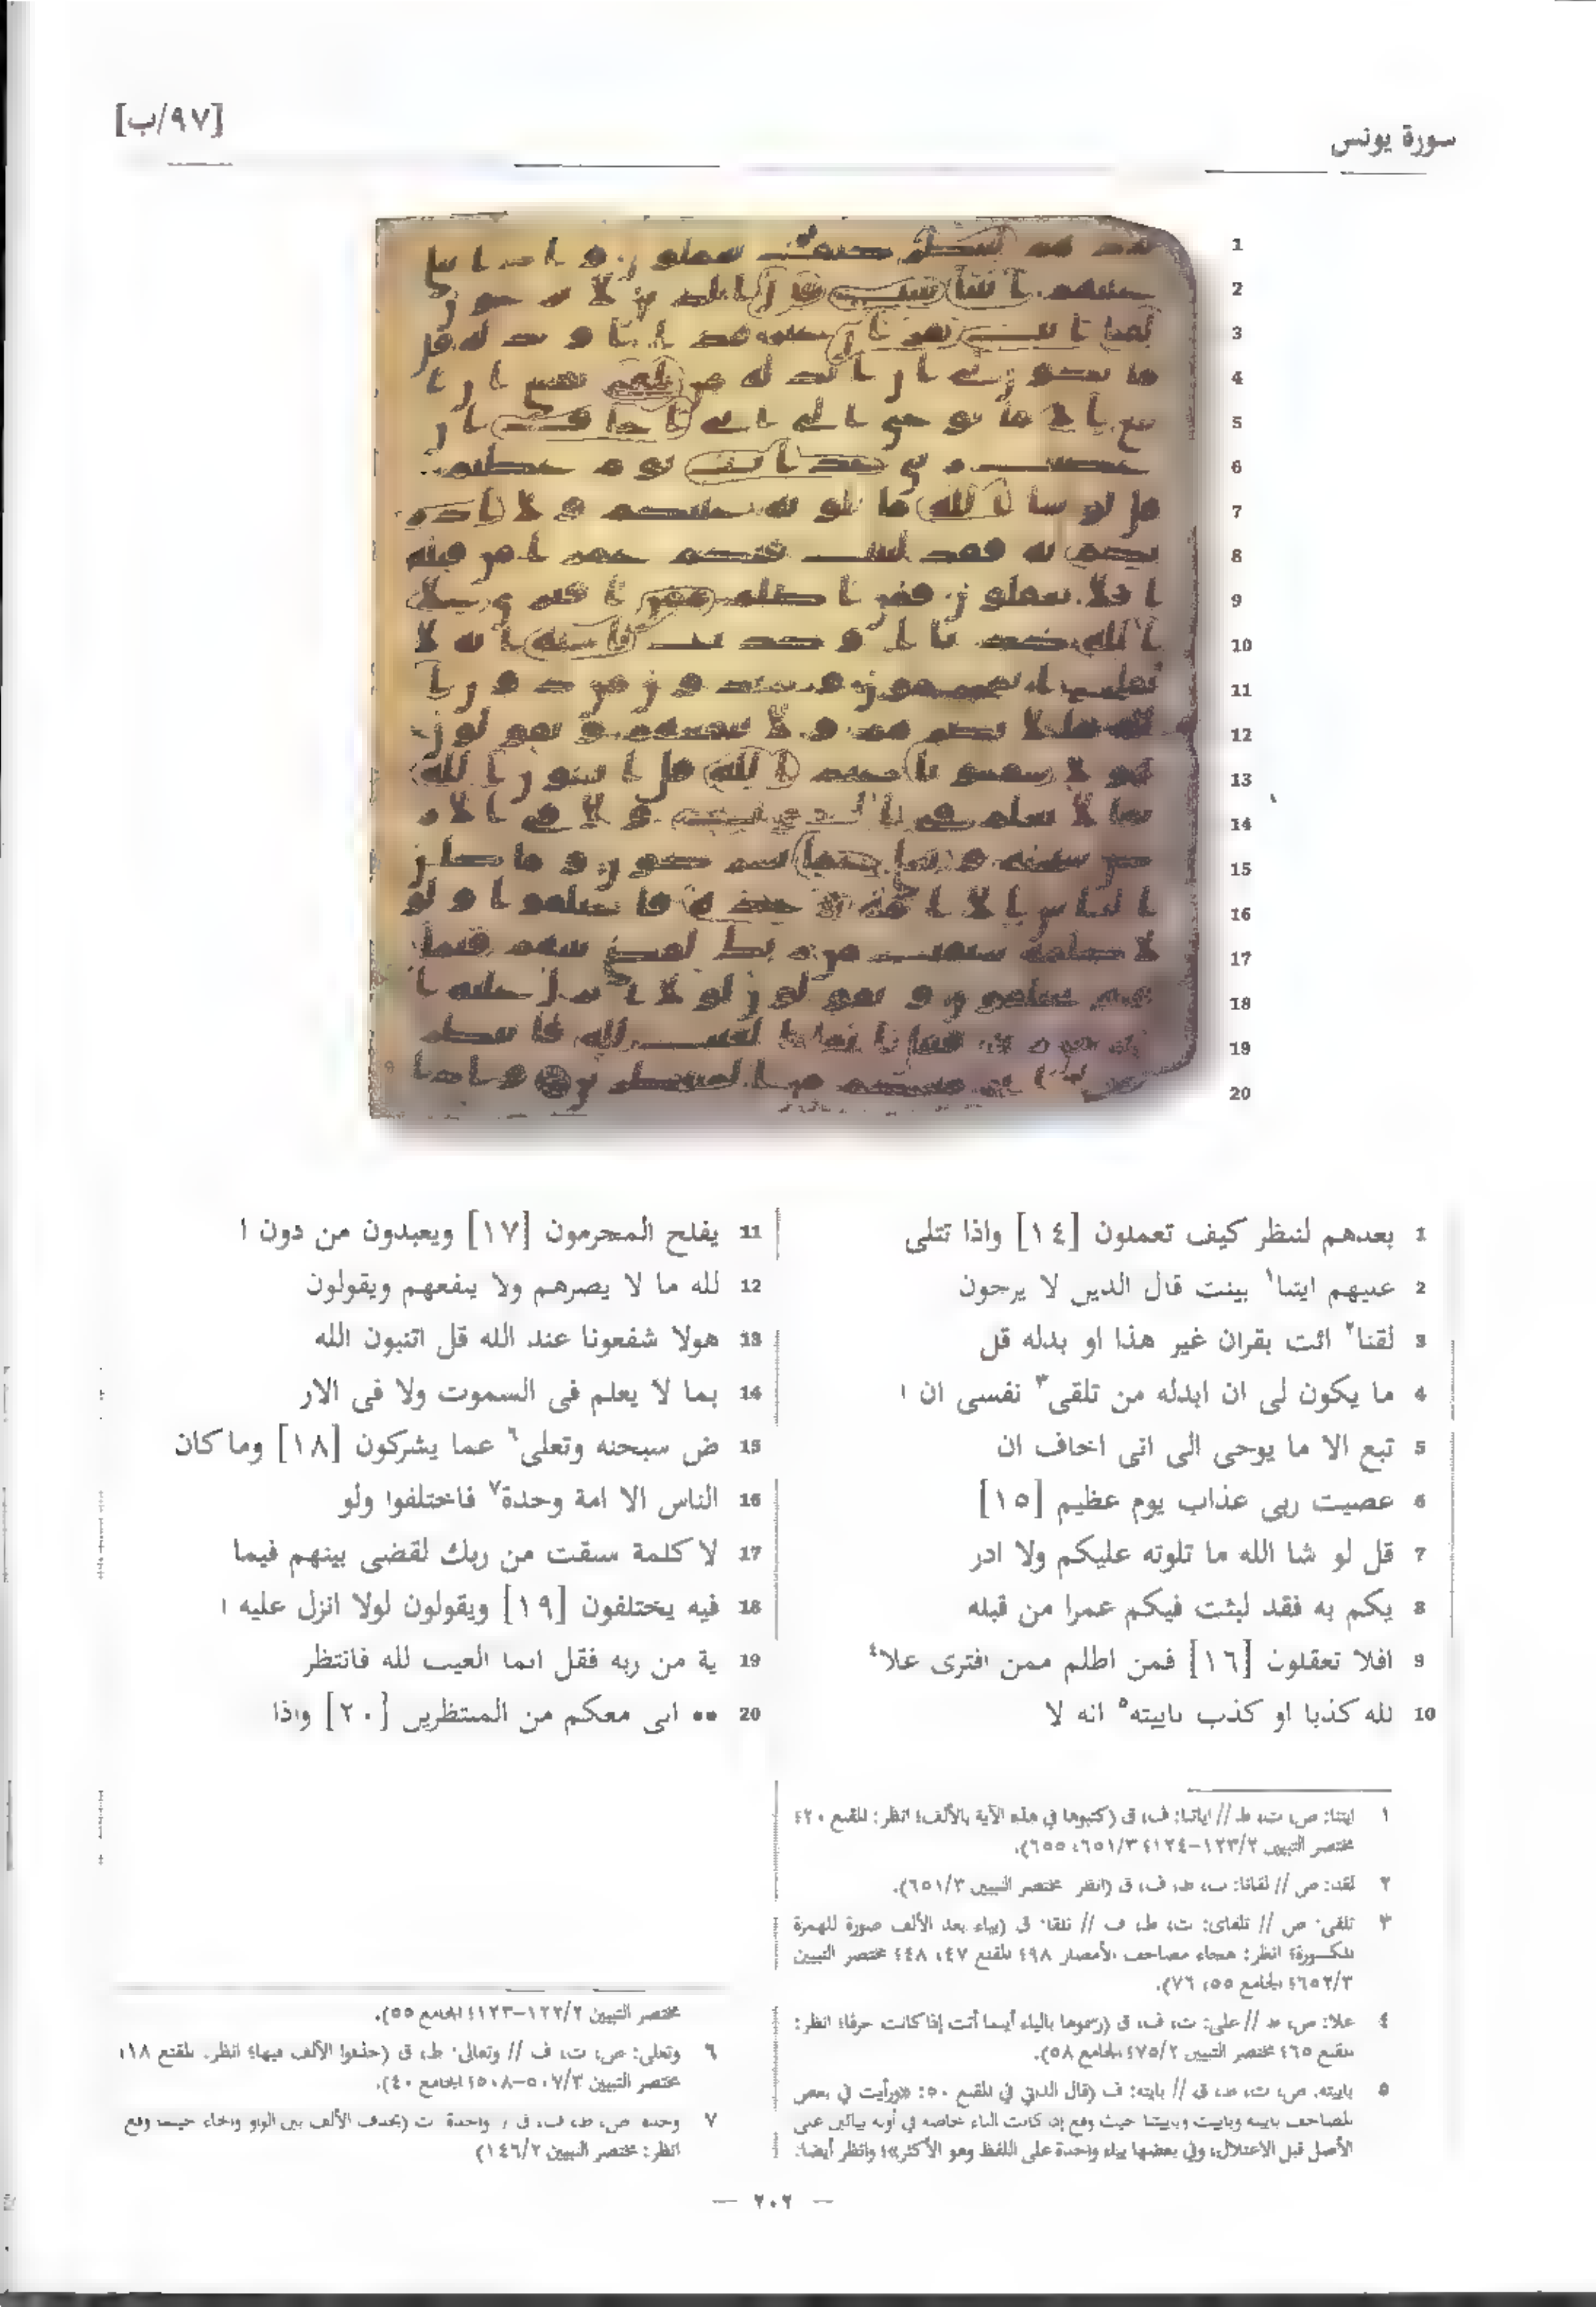 سورة يونس
[٩٧/ب]
1 بعدهم لننظر كيف تعملون [١٤] واذا تتلى
2 عليهم ايتنا١ بينت قال الذين لا يرجون
3 لقنا٢ ائت بقران غير هذا او بدله قل
4 ما يكون لى ان ابدله من تلقى٣ نفسى ان ا
5 تبع الا ما يوحى الى انى اخاف ان
6 عصيت ربى عذاب يوم عظيم [١٥]
7 قل لو شا الله ما تلوته عليكم ولا ادر
8 يكم به فقد لبثت فيكم عمرا من قبله
9 افلا تعقلون [١٦] فمن اظلم ممن افترى علا٤
10 لله كذبا او كذب باييته٥ انه لا
11 يفلح المجرمون [١٧] ويعبدون من دون ا
12 لله ما لا يضرهم ولا ينفعهم ويقولون
13 هولا شفعونا عند الله قل اتنبون الله
14 بما لا يعلم فى السموت ولا فى الار
15 ض سبحنه وتعلى٦ عما يشركون [١٨] وما كان
16 الناس الا امة وحدة٧ فاختلفوا ولو
17 لا كلمة سبقت من ربك لقضى بينهم فيما
18 فيه يختلفون [١٩] ويقولون لولا انزل عليه ا
19 ية من ربه فقل انما الغيب لله فانتظر
20 •• انى معكم من المنتظرين [٢٠] واذا
١ ايتنا: ص، ت، ط // اياتنا: ف، ق (كتبوها في هذه الآية بالألف؛ انظر: المقنع ٤٢٠
مختصر التبيين ١٢٣/٢–١٢٤؛ ٦٥١/٣، ٦٥٥).
٢ لقنا: ص // لقانا: ت، ط، ف، ق (انظر مختصر التبيين ٦٥١/٣).
٣ تلقى: ص // تلقاى: ت، ط، ف // تلقا: ق (بياء بعد الألف صورة للهمزة
المكسورة؛ انظر: هجاء مصاحف الأمصار ٩٨؛ المقنع ٤٧، ٤٤٨ مختصر التبيين
٦٥٢/٣؛ الجامع ٥٥، ٧٦).
٤ علا: ص، ط // على: ت، ف، ق (رسموها بالياء أينما أتت إذا كانت حرفا؛ انظر:
المقنع ٤٦٥ مختصر التبيين ٧٥/٢؛ الجامع ٥٨).
٥ باييته: ص، ت، ط، ق // بايته: ف (قال الداني في المقنع ٥٠: «ورأيت في بعض
المصاحف باييه وباييت وباييتنا حيث وقع إذا كانت الباء خاصة في أوله بيائين على
الأصل قبل الاعتلال، وفي بعضها بياء واحدة على اللفظ وهو الأكثر»؛ وانظر أيضا:
مختصر التبيين ١٢٢/٢–١٢٣؛ الجامع ٥٥).
٦ وتعلى: ص، ت، ف // وتعالى: ط، ق (حذفوا الألف فيها؛ انظر: المقنع ١٨؛
مختصر التبيين ٥٠٧/٣–٥٠٨؛ الجامع ٤٠).
٧ وحدة: ص، ط، ف، ق // واحدة: ت (بحذف الألف بين الواو والحاء حيث وقع
انظر: مختصر التبيين ١٤٦/٢)
— ٢٠٢ —